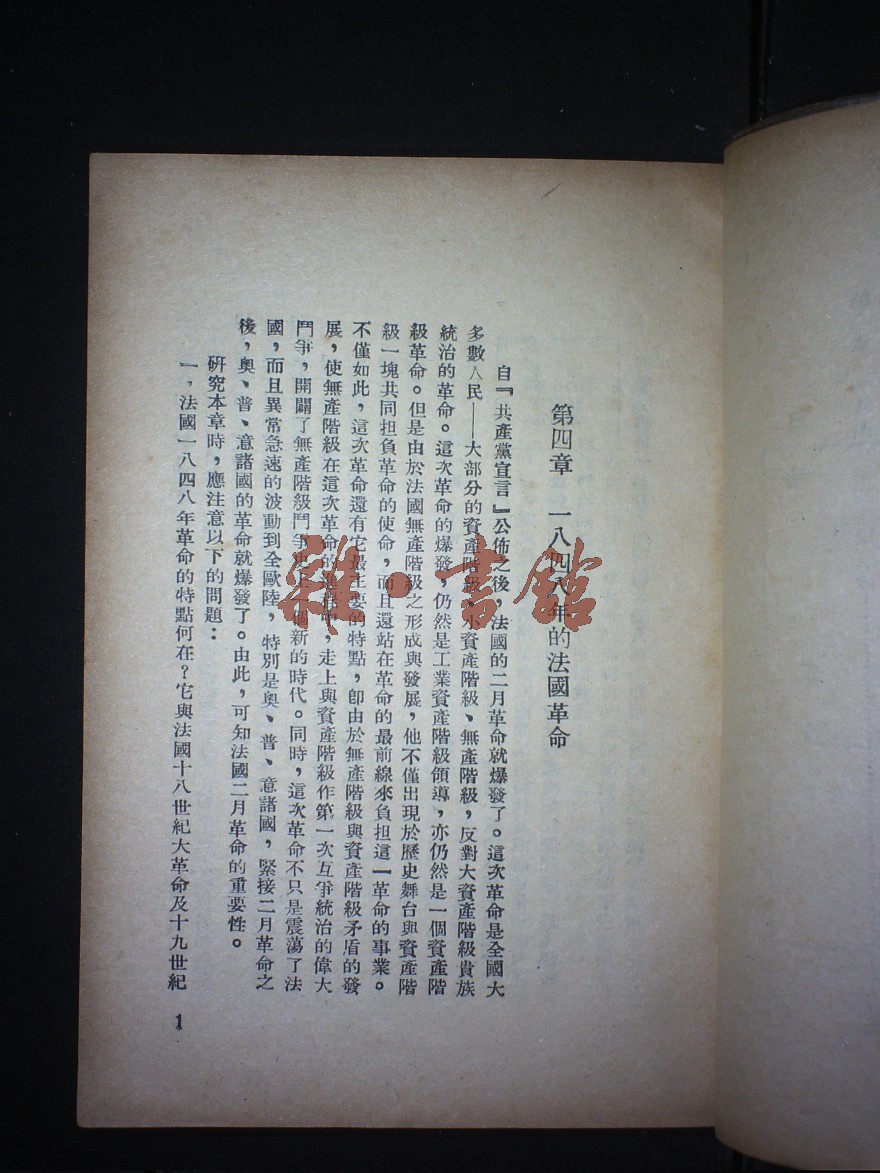 第四章　一八四八年的法國革命
自『共產黨宣言』公佈之後，法國的二月革命就爆發了。這次革命是全國大
多數人民——大部分的資產階級、小資產階級、無產階級，反對大資產階級貴族
統治的革命。這次革命的爆發，仍然是工業資產階級領導，亦仍然是一個資產階
級革命。但是由於法國無產階級之形成與發展，他不僅出現於歷史舞台與資產階
級一塊共同担負革命的使命，而且還站在革命的最前線來負担這一革命的事業。
不僅如此，這次革命還有它最主要的特點，卽由於無產階級與資產階級矛盾的發
展，使無產階級在這次革命的進程中，走上與資產階級作第一次互爭統治的偉大
鬥爭，開闢了無產階級鬥爭史上一個新的時代。同時，這次革命不只是震蕩了法
國，而且異常急速的波動到全歐陸，特別是奧、普、意諸國，緊接二月革命之
後，奧、普、意諸國的革命就爆發了。由此，可知法國二月革命的重要性。
研究本章時，應注意以下的問題：
一，法國一八四八年革命的特點何在？它與法國十八世紀大革命及十九世紀
1
雜·書館